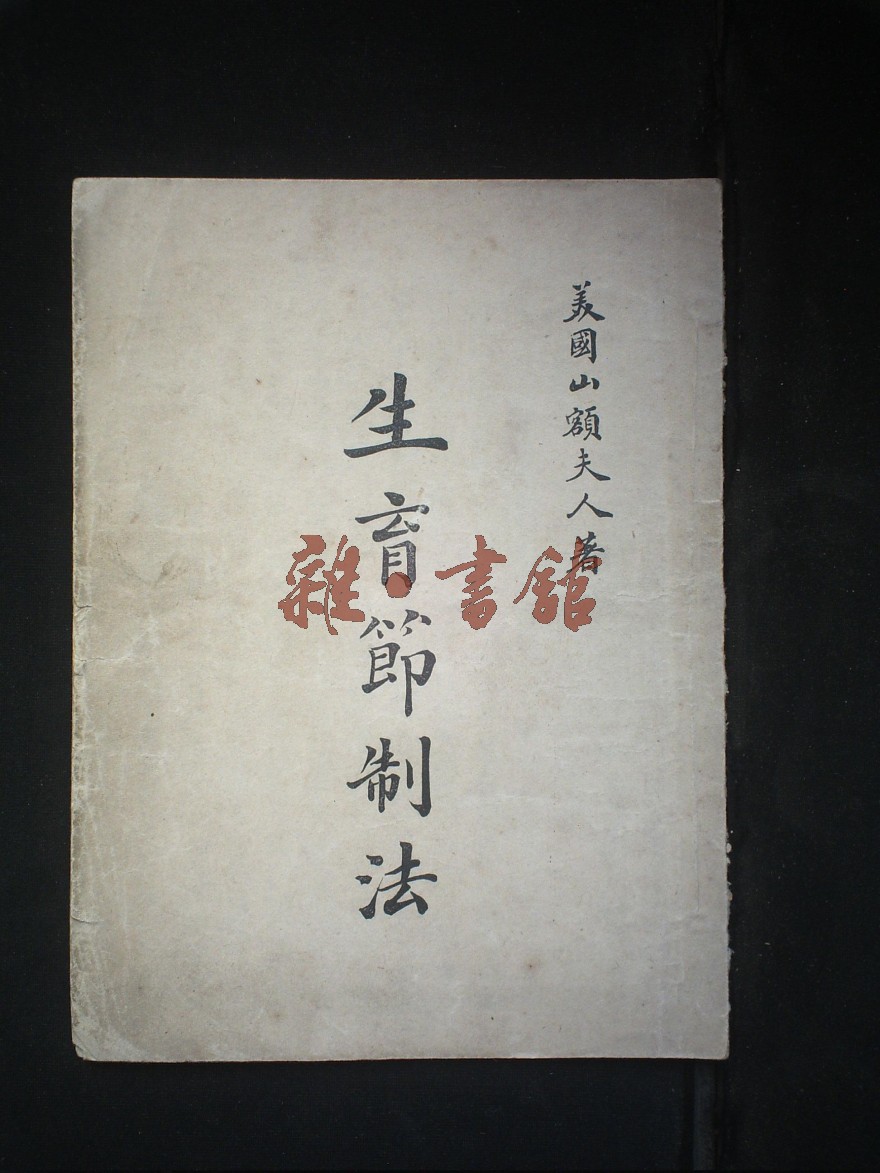 美國山額夫人著
生育節制法
雜·書館